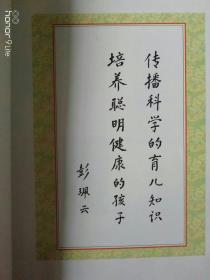 honor 9Lite
传播科学的育儿知识
培养聪明健康的孩子
彭珮云